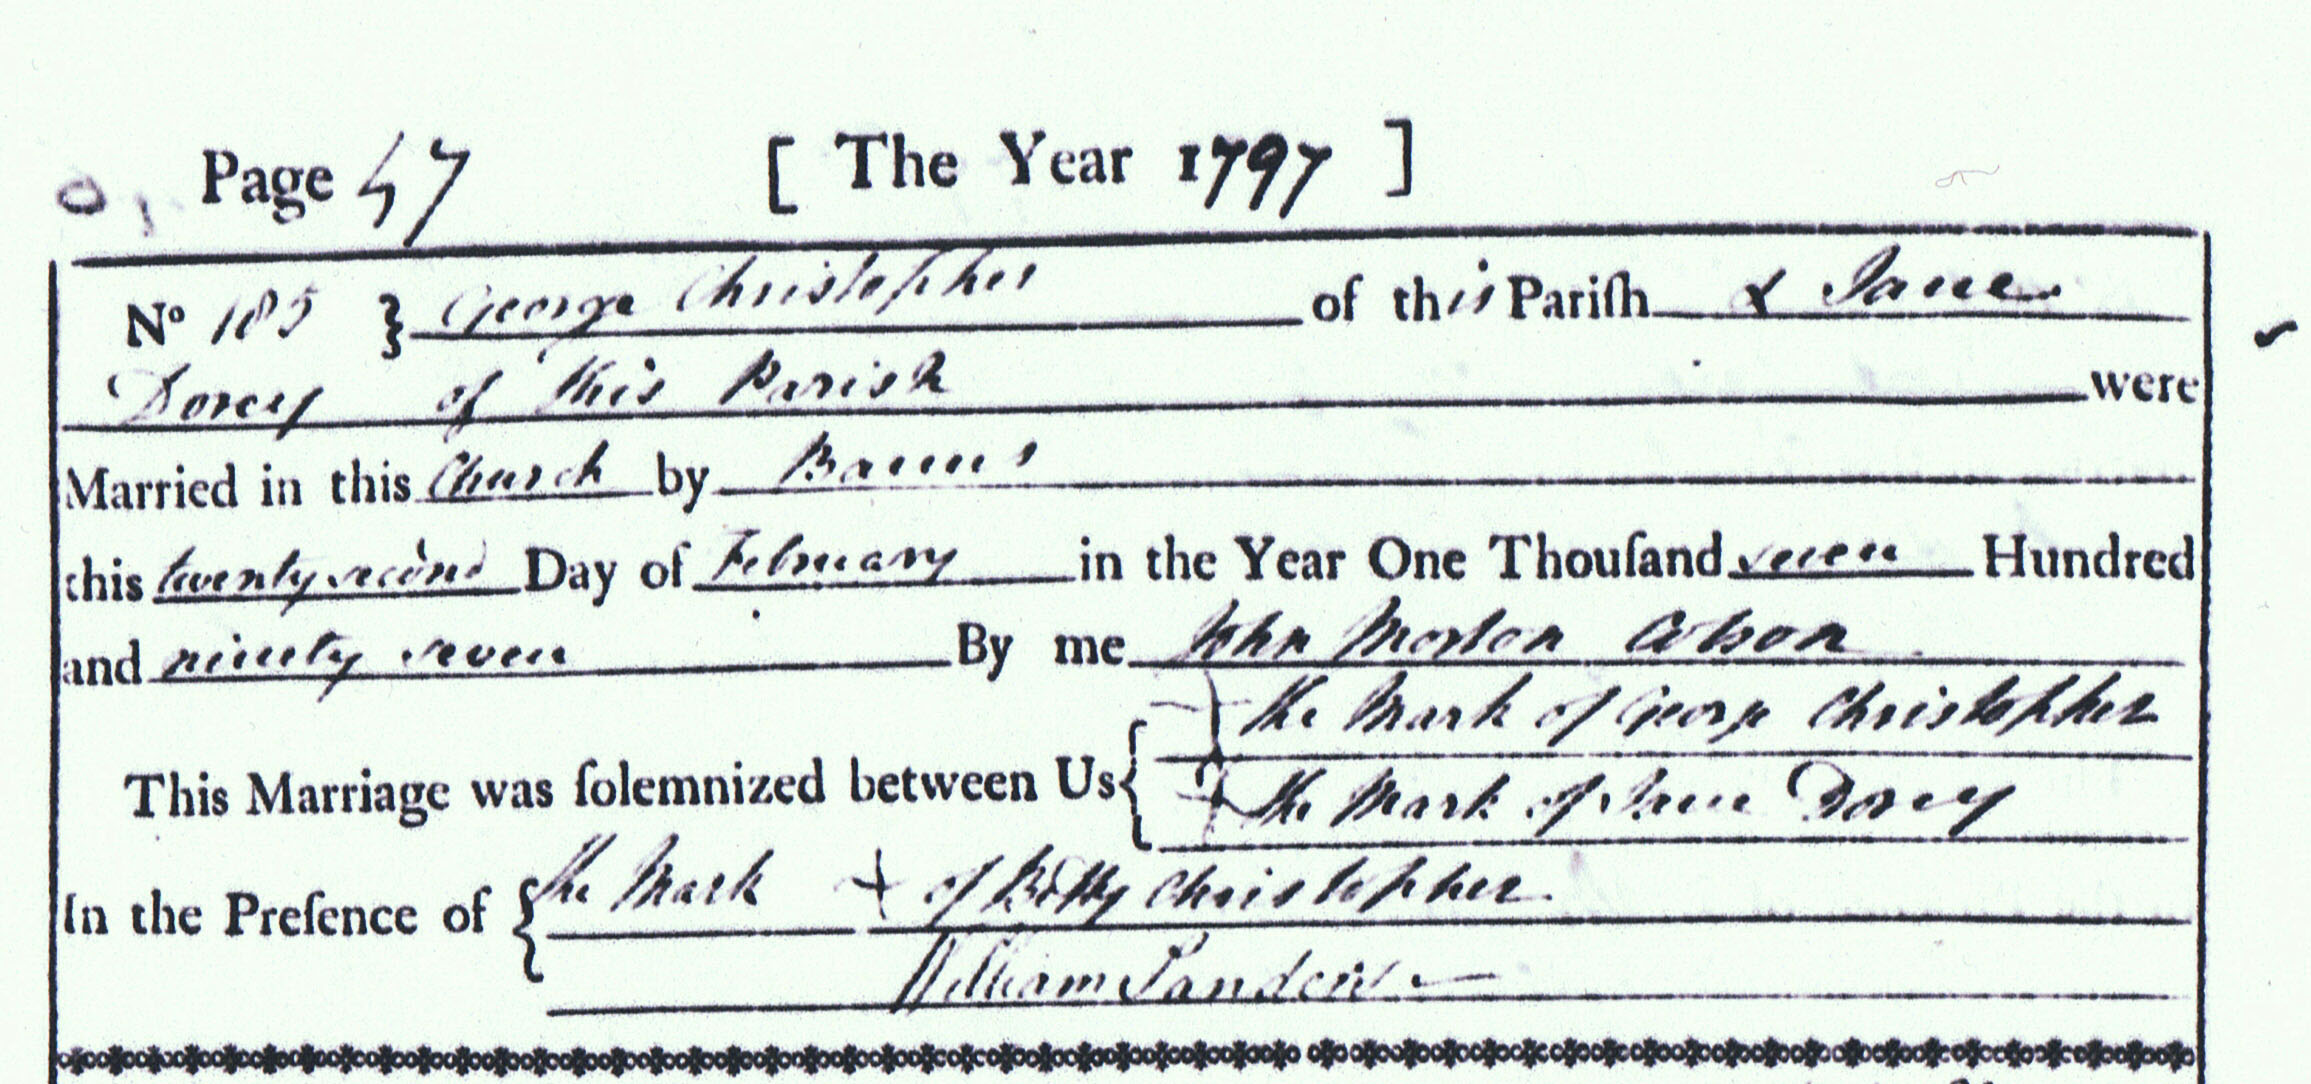 Page 47 [ The Year 1797 ]
No 185 } George Christopher of this Pariſh & Jane
Dorey of this Parish were
Married in this Church by Banns
this twenty second Day of February in the Year One Thouſand seven Hundred
and ninety seven By me John Morton Colson
the Mark of George Christopher
This Marriage was ſolemnized between Us {
the Mark of Jane Dorey
In the Preſence of { the Mark + of Betty Christopher
William Sanders